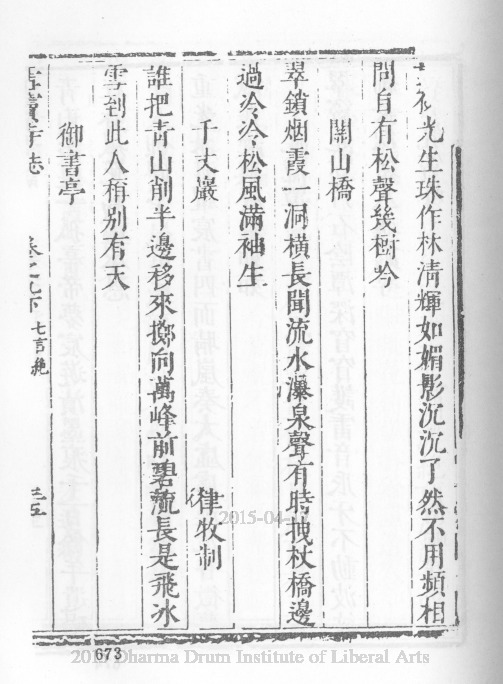 光生珠作林清輝如媚影沉沉了然不用頻相
問自有松聲幾樹吟
關山橋
翠鎖烟霞一洞橫長聞流水瀑泉聲有時拽杖橋邊
過冷冷松風滿袖生
千丈巖 律牧制
誰把青山削半邊移來擲向萬峰前碧流長是飛冰
雪到此人稱別有天
御書亭
寺志 卷之九下 七言絶 三五
673
2015-04-
Dharma Drum Institute of Liberal Arts